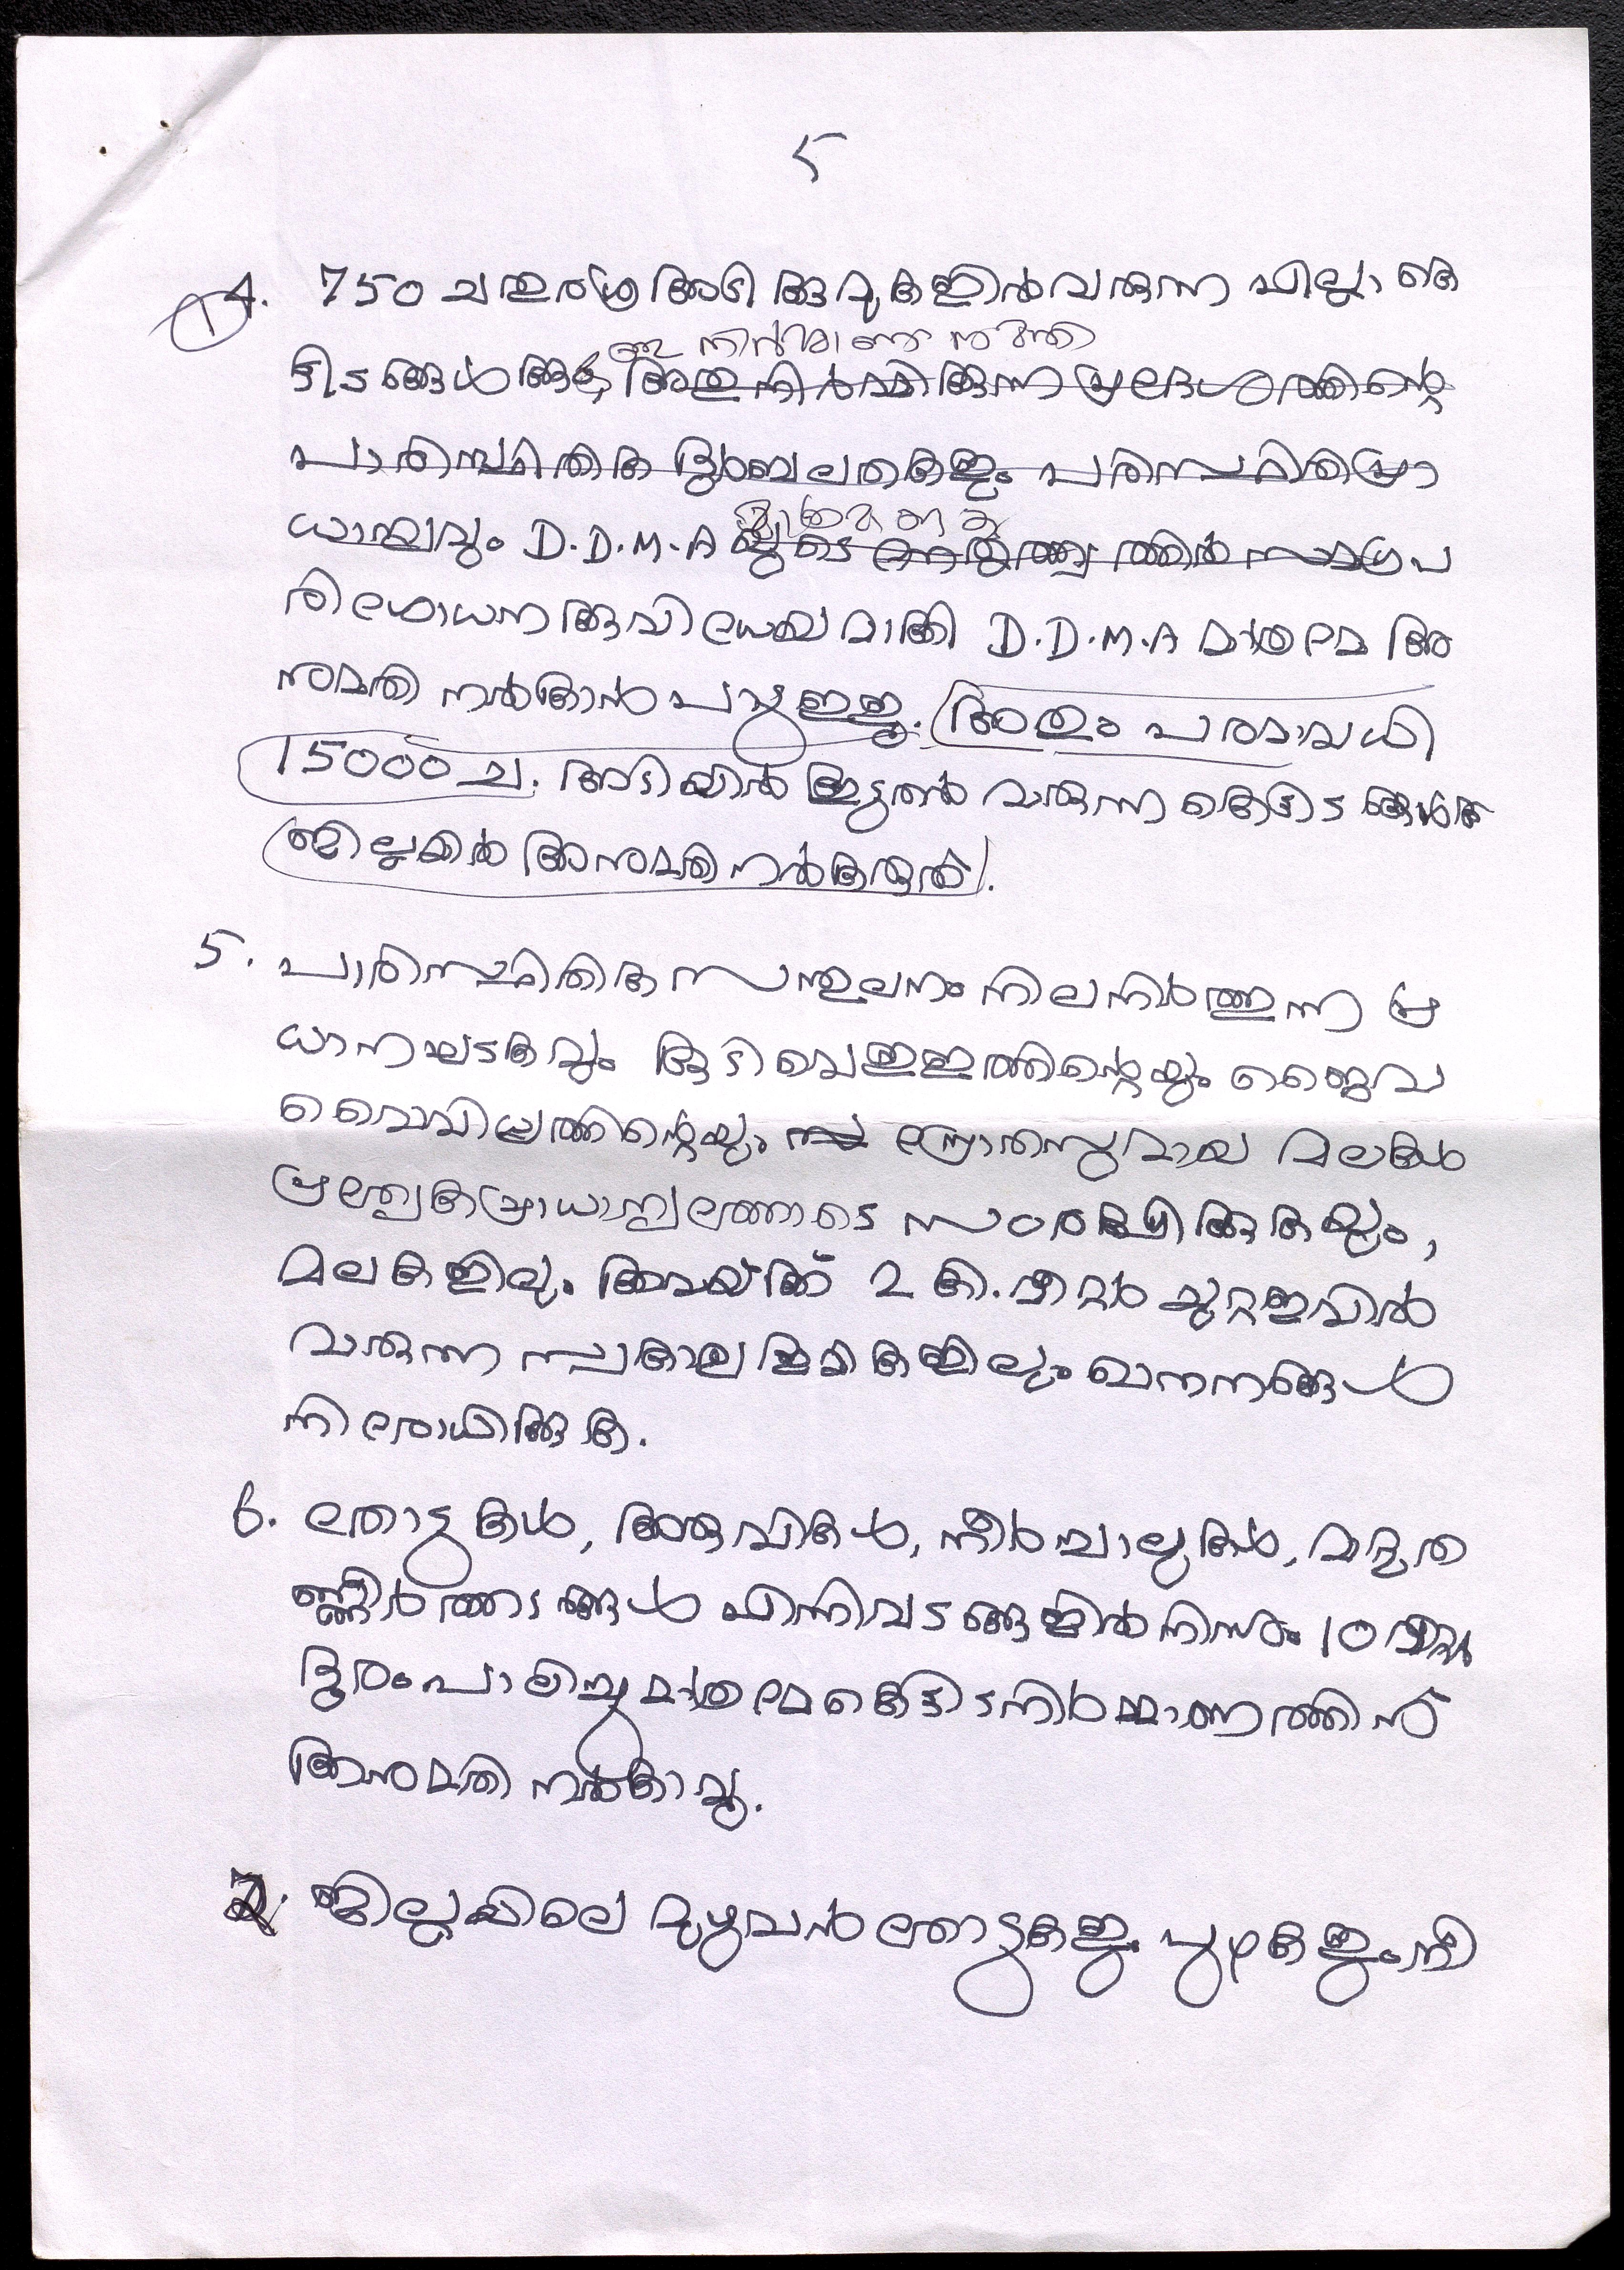 5
① 4. 750 ചതുരശ്ര അടി മുകളിൽ വരുന്ന എല്ലാ കെ
ട്ടിടങ്ങൾക്കും, അതു നിർമ്മിക്കുന്ന പ്രദേശത്തിന്റെ
പാരിസ്ഥിതിക ദുർബലതകളും പരിസ്ഥിതിപ്രാ
ധാന്യവും D.D.M.A യുടെ നേതൃത്വത്തിൽ സമഗ്ര പ
രിശോധനക്കു വിധേയമാക്കി D.D.M.A മാത്രമേ അ
നുമതി നൽകാൻ പാടുള്ളു. അതും പരമാവധി
15000 ച. അടിയിൽ കൂടുതൽ വരുന്ന കെട്ടിടങ്ങൾക്ക്
ജില്ലയിൽ അനുമതി നൽകരുത്.
5. പാരിസ്ഥിതിക സന്തുലനം നിലനിർത്തുന്ന പ്ര
ധാനഘടകവും കുടിവെള്ളത്തിന്റെയും ജൈവ
വൈവിധ്യത്തിന്റെയും സ്രോതസുമായ മലകൾ
പ്രത്യേകപ്രാധാന്യത്തോടെ സംരക്ഷിക്കുകയും,
മലകളിലും അവയ്ക്ക് 2 കി.മീറ്റർ ചുറ്റളവിൽ
വരുന്ന സ്വകാര്യഭൂമികളിലും ഖനനങ്ങൾ
നിരോധിക്കുക.
6. തോടുകൾ, അരുവികൾ, നീർച്ചാലുകൾ, മറ്റുത
ണ്ണീർത്തടങ്ങൾ എന്നിവടങ്ങളിൽ നിന്നും 10 മീറ്റർ
ദൂരം പാലിച്ചു മാത്രമേ കെട്ടിടനിർമ്മാണത്തിന്
അനുമതി നൽകാവൂ.
7. ജില്ലയിലെ മുഴുവൻ തോടുകളും പുഴകളും നീ